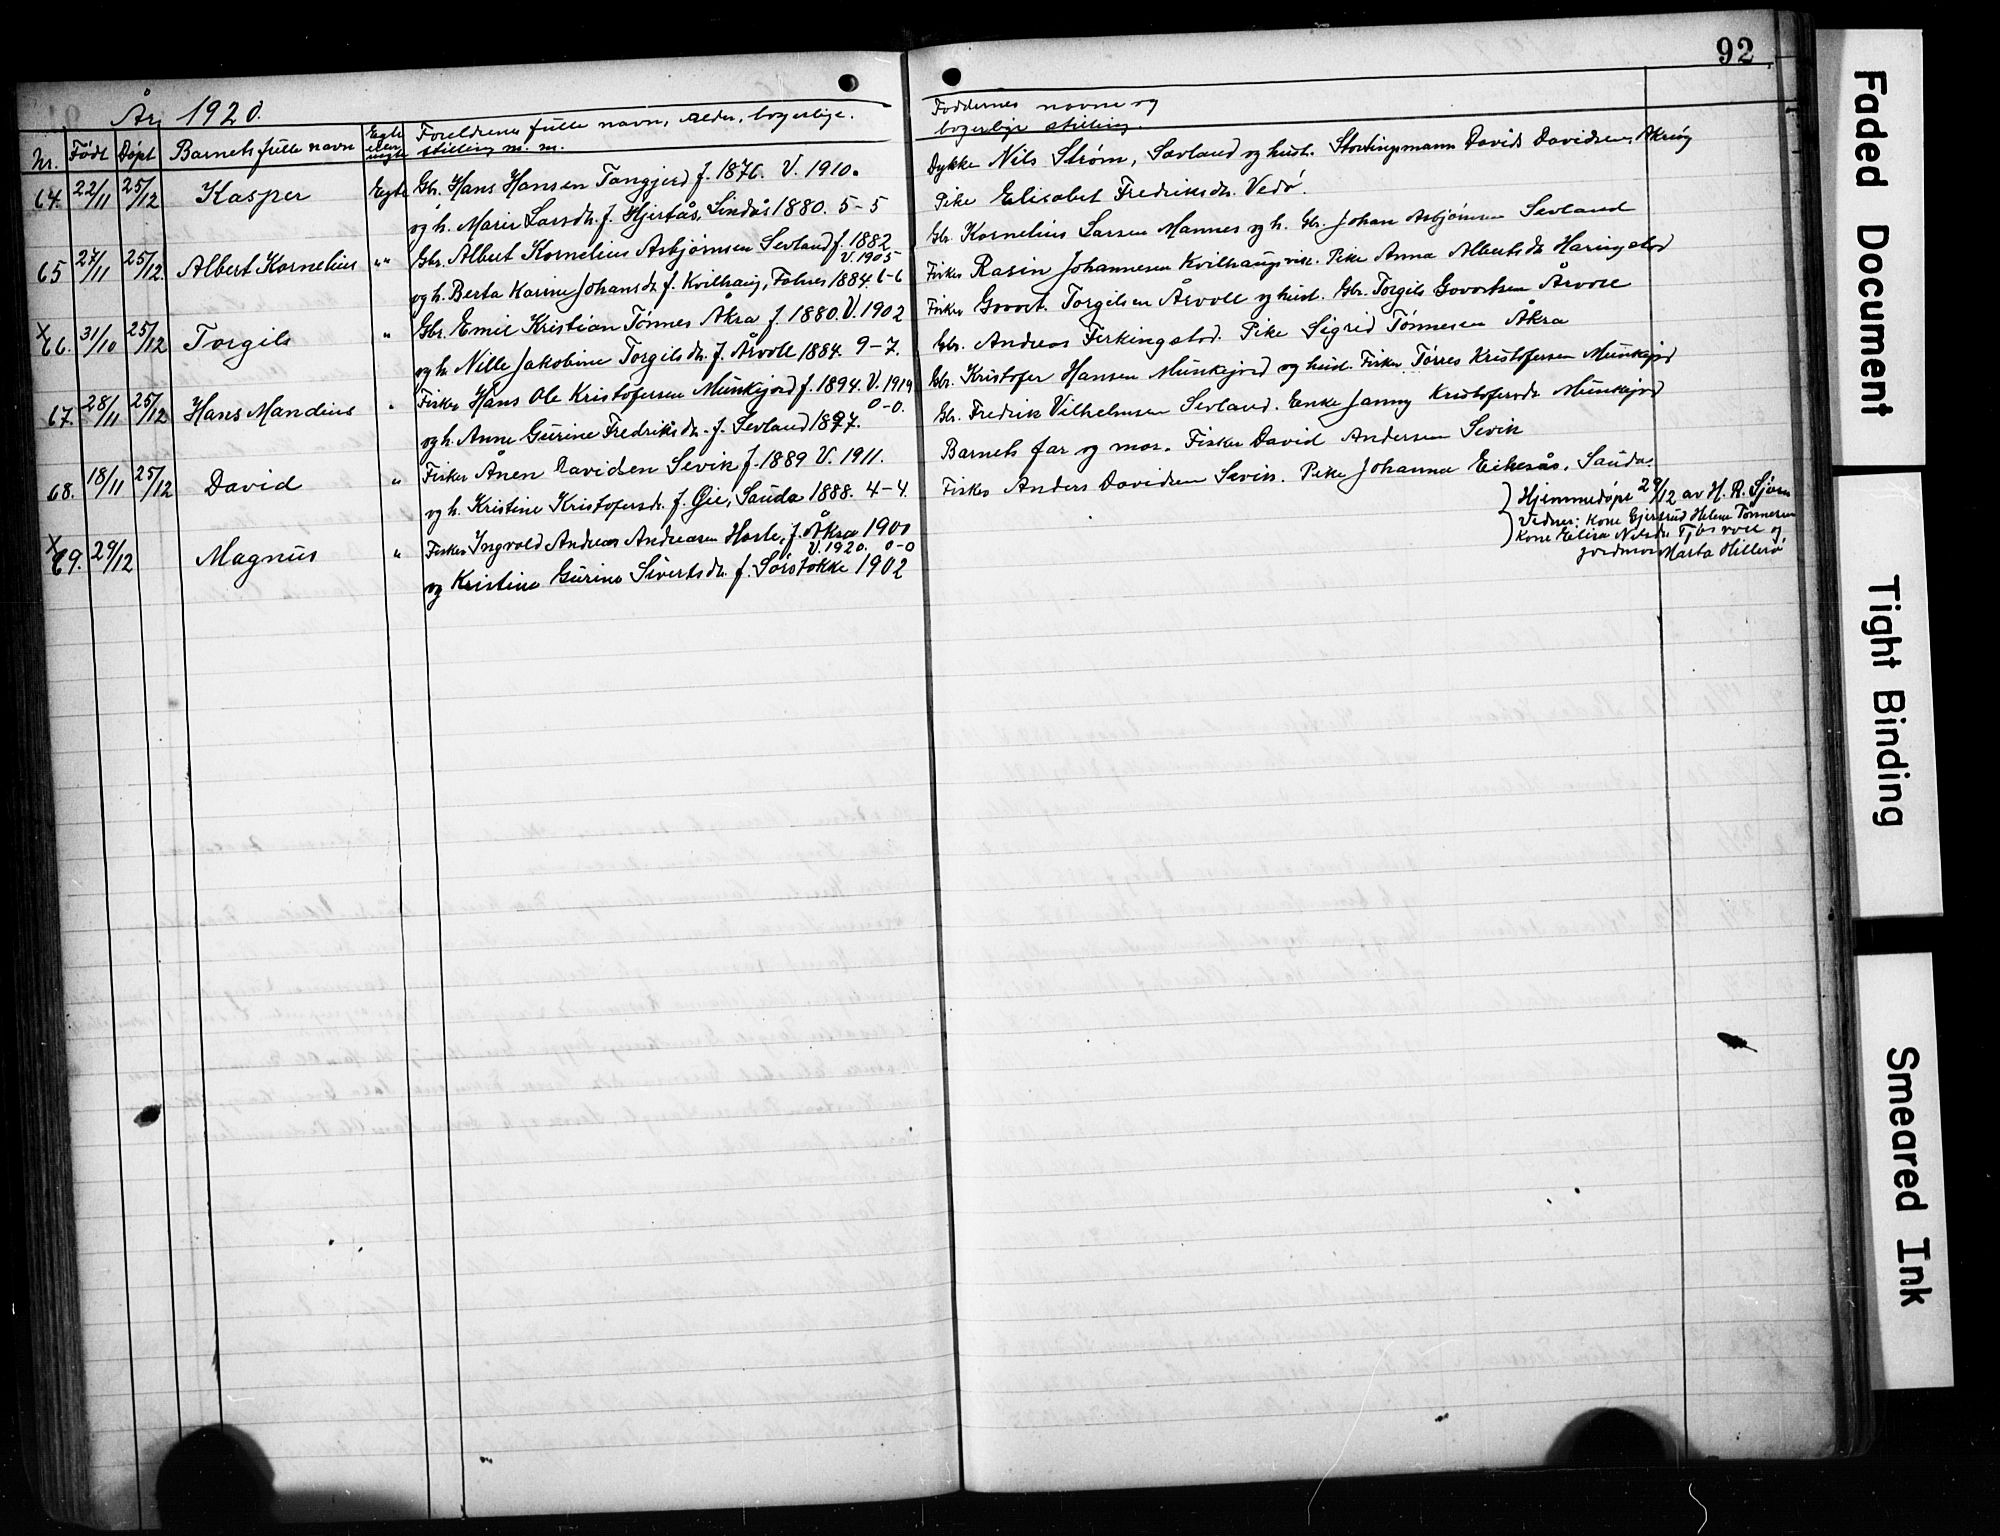 92
År 1920.
Nr. Født Døpt Barnets fulle navn Egte eller uegte Foreldrenes fulle navn, alder, bogerlige stilling m. m.
Faddernes navne og bogerlige stilling.
64. 22/11 25/12 Kasper Egte Gbr. Hans Hansen Tangjerd f. 1876. V. 1910.
og h. Marie Larsdtr. f. Hjertås, Lindås 1880. 5-5
Dykke Nils Strøm, Sævland og hust. Stortingsmann Davids Davidsen, Åkrehg
Pike Elisabet Fredriksdtr. Vedø.
65 27/11 25/12. Albert Kornelius "" Gbr. Albert Kornelius Asbjørnsen Sevland f. 1882 V. 1905
og h. Berta Karine Johansdtr f. Kvilhaug, Falnes 1884. 6-6
Gbr. Kornelius Larsen Mannes og h. Gbr. Johan Asbjørnsen Sevland
Fisker Rasin Johannesen Kvilhaugsvik. Pike Anna Albertsdtr Haringstad
x 66. 31/10 25/12 Torgils " Gbr. Emil Kristian Tønnes Åkra f. 1880. V. 1902
og h. Nille Jakobine Torgilsdtr. f. Årvoll 1884. 9-7.
Fisker Govert Torgilsen Årvoll og hust. Gbr. Torgils Govertsen Årvoll
Gbr. Andreas Ferkingstad. Pike Sigrid Tønnesen Åkra
67. 28/11 25/12 Hans Mandius " Fisker Hans Ole Kristofersen Munkejord f. 1894. V. 1919 0-0.
og h. Anne Gurine Fredriksdtr. f. Sevland 1897.
Gbr. Kristofer Hansen Munkejord og hust. Fisker Tørres Kristofersen Munkejord
Gbr. Fredrik Vilhelmsen Sevland. Enke Janny Kristofersdtr Munkejord
68. 18/11 25/12 David " Fisker Ånen Davidsen Sevik f. 1889 V. 1911.
og h. Kristine Kristofersdtr. f. Øie, Sauda 1888. 4-4.
Barnets far og mor. Fisker David Andersen Sevik
Fisker Anders Davidsen Sevik. Pike Johanna Eikesås, Sauda.
x 69. 29/12 Magnus " Fisker Ingvald Andreas Andreasen Hasle, f. Åkra 1900 V. 1920. 0-0
og Kristine Gurine Sivertsdtr. f. Sørstokke 1902
Hjemmedøpt 29/12 av H. R. Sjøen
Vidner: Kone Gjertrud Helene Tønnesen
Kone Elisa Nilsdtr Tjøsvoll og
jordmor Marta Hillesø
Faded Document
Tight Binding
Smeared Ink